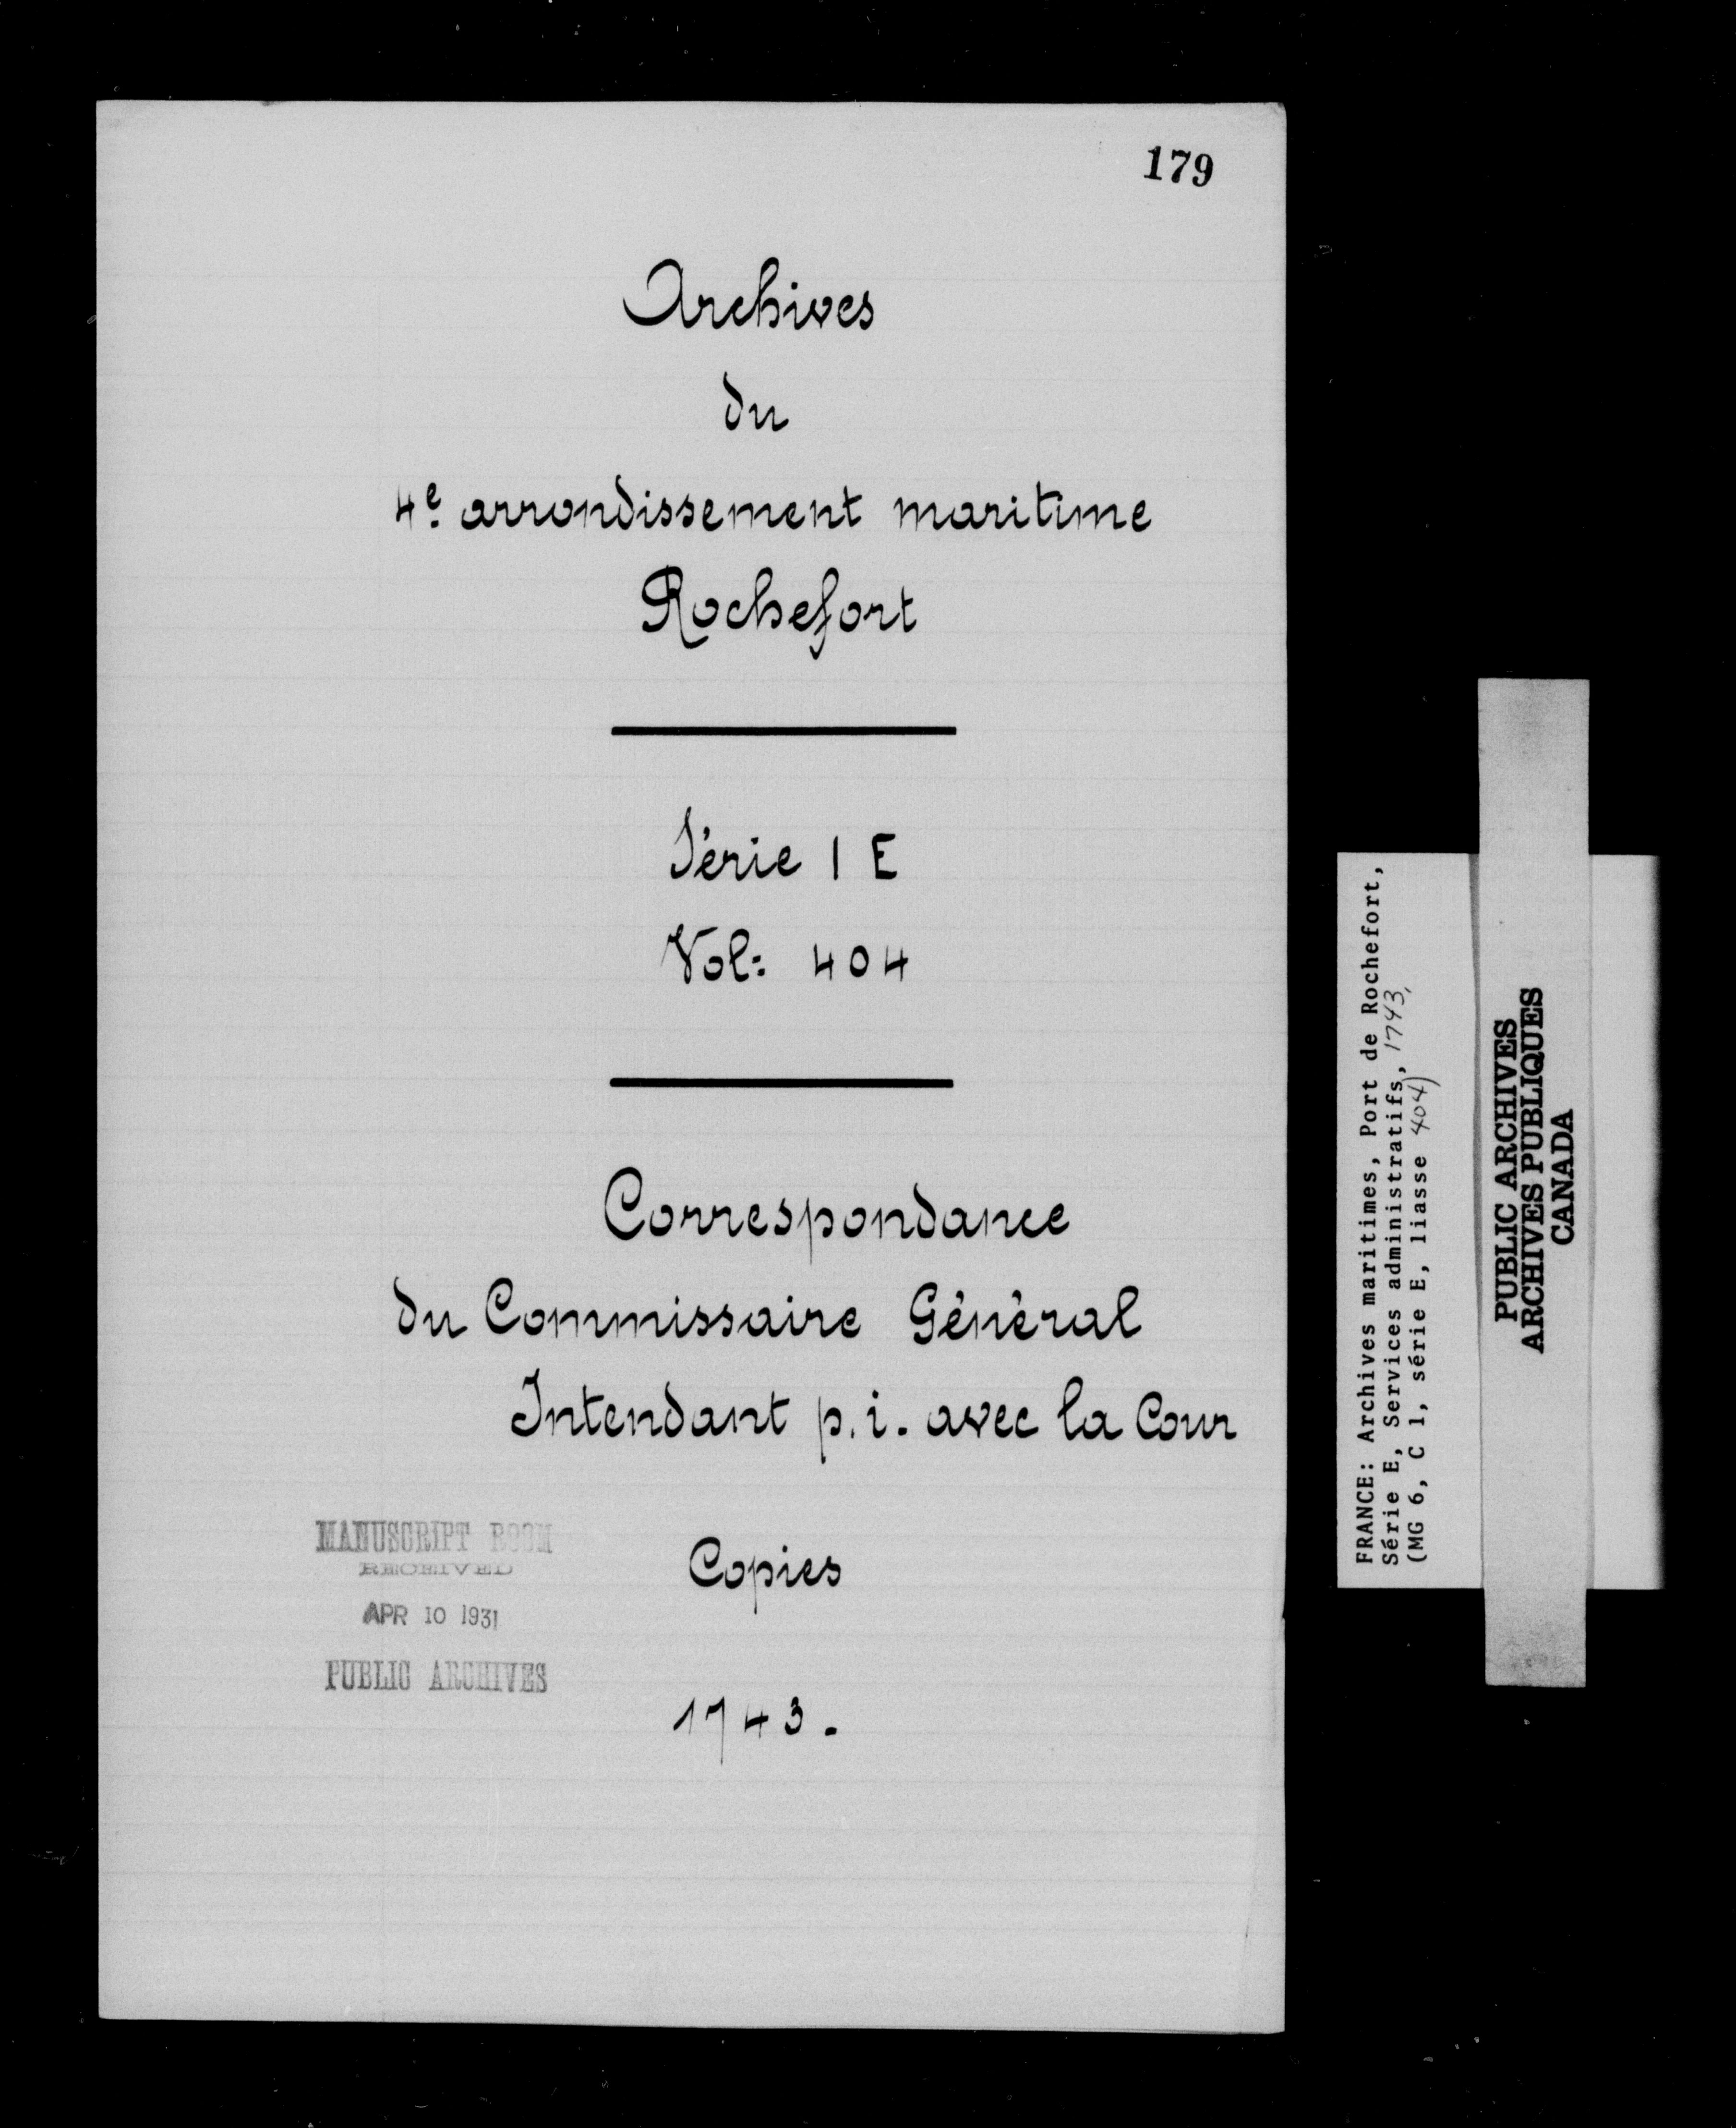 179
Archives
du
4e arrondissement maritime
Rochefort
Série 1 E
Vol: 404
Correspondance
du Commissaire Général
Intendant p.i. avec la Cour
MANUSCRIPT ROOM
RECEIVED
APR 10 1931
PUBLIC ARCHIVES
Copies
1743.
FRANCE: Archives maritimes, Port de Rochefort,
Série E, Services administratifs, 1743,
(MG 6, C 1, série E, liasse 404)
PUBLIC ARCHIVES
ARCHIVES PUBLIQUES
CANADA